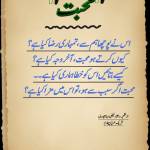 محبت
اس نے پوچھا ہم سے، تمہاری رضا کیا ہے؟
کیوں کرتے ہو محبت، آخر وجہ کیا ہے؟
کیسے بتائیں اس کو خطا ہماری کیا ہے۔۔
محبت اگر سبب سے ہو، تو اس میں مزا کیا ہے؟